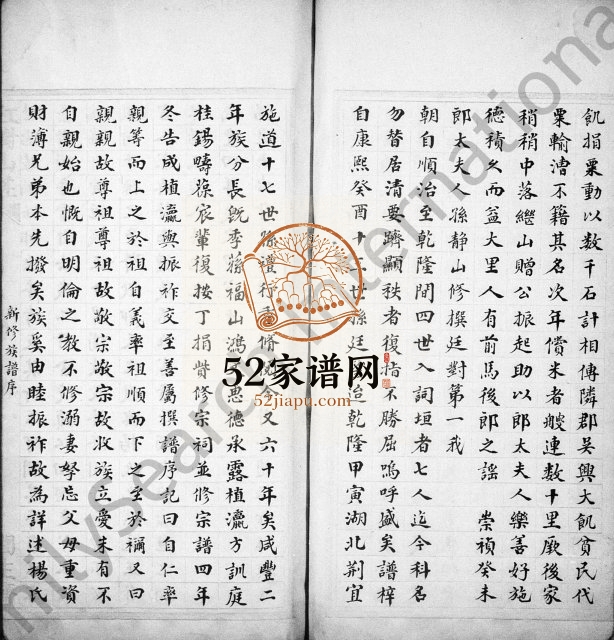 飢捐粟動以數千石計相傳隣郡吳興大飢貧民代
粟輸漕不籍其名次年償米者艘連數十里厥後家
稍稍中落繼山贈公振起助以郎太夫人樂善好施
德積久而益大里人有前馬後郎之謡 崇禎癸未
郎太夫人孫静山修撰廷對第一我
朝自順治至乾隆閲四世入詞垣者七人迄今科名
勿替居清要躋顯秩者復指不勝屈嗚呼盛矣譜梓
自康熙癸酉十二世孫廷 乾隆甲寅湖北荆宜
施道十七世孫禮行 修 又六十年矣咸豐二
年族分長既季蔣福山鴻 思德承露植瀛方訓庭
桂錫疇葆宸輩復按丁捐貲修宗祠並修宗譜四年
冬告成植瀛與振祚交至善屬撰譜序記曰自仁率
親等而上之於祖自義率祖順而下之至於禰又曰
親親故尊祖尊祖故敬宗敬宗故收族立愛未有不
自親始也慨自明倫之教不修溺妻孥忌父母重資
財薄兄弟本先撥矣族奚由睦振祚故為詳述楊氏
新修族譜序
52家谱网
52jiapu.com
FamilySearch International